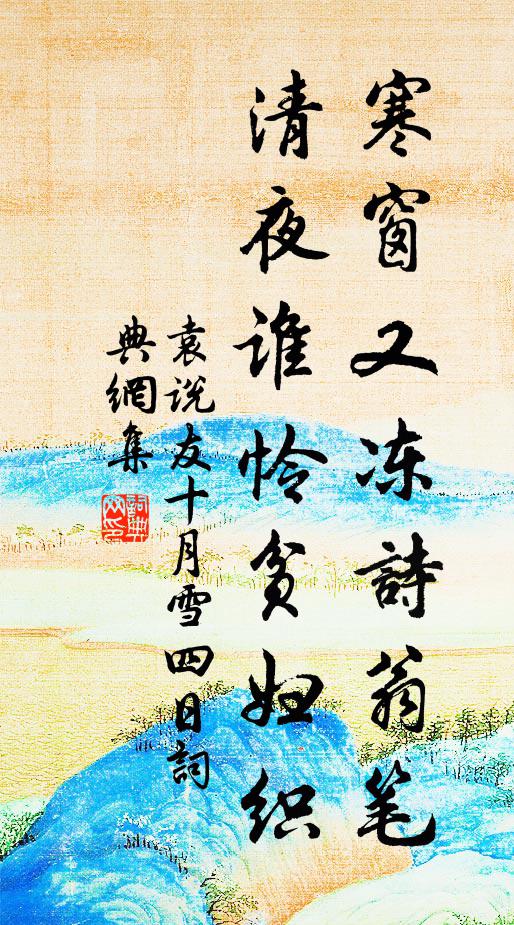 寒窗又冻詩翁笔
清夜谁怜贫妇织
袁说友十月雪四日詞
典網集